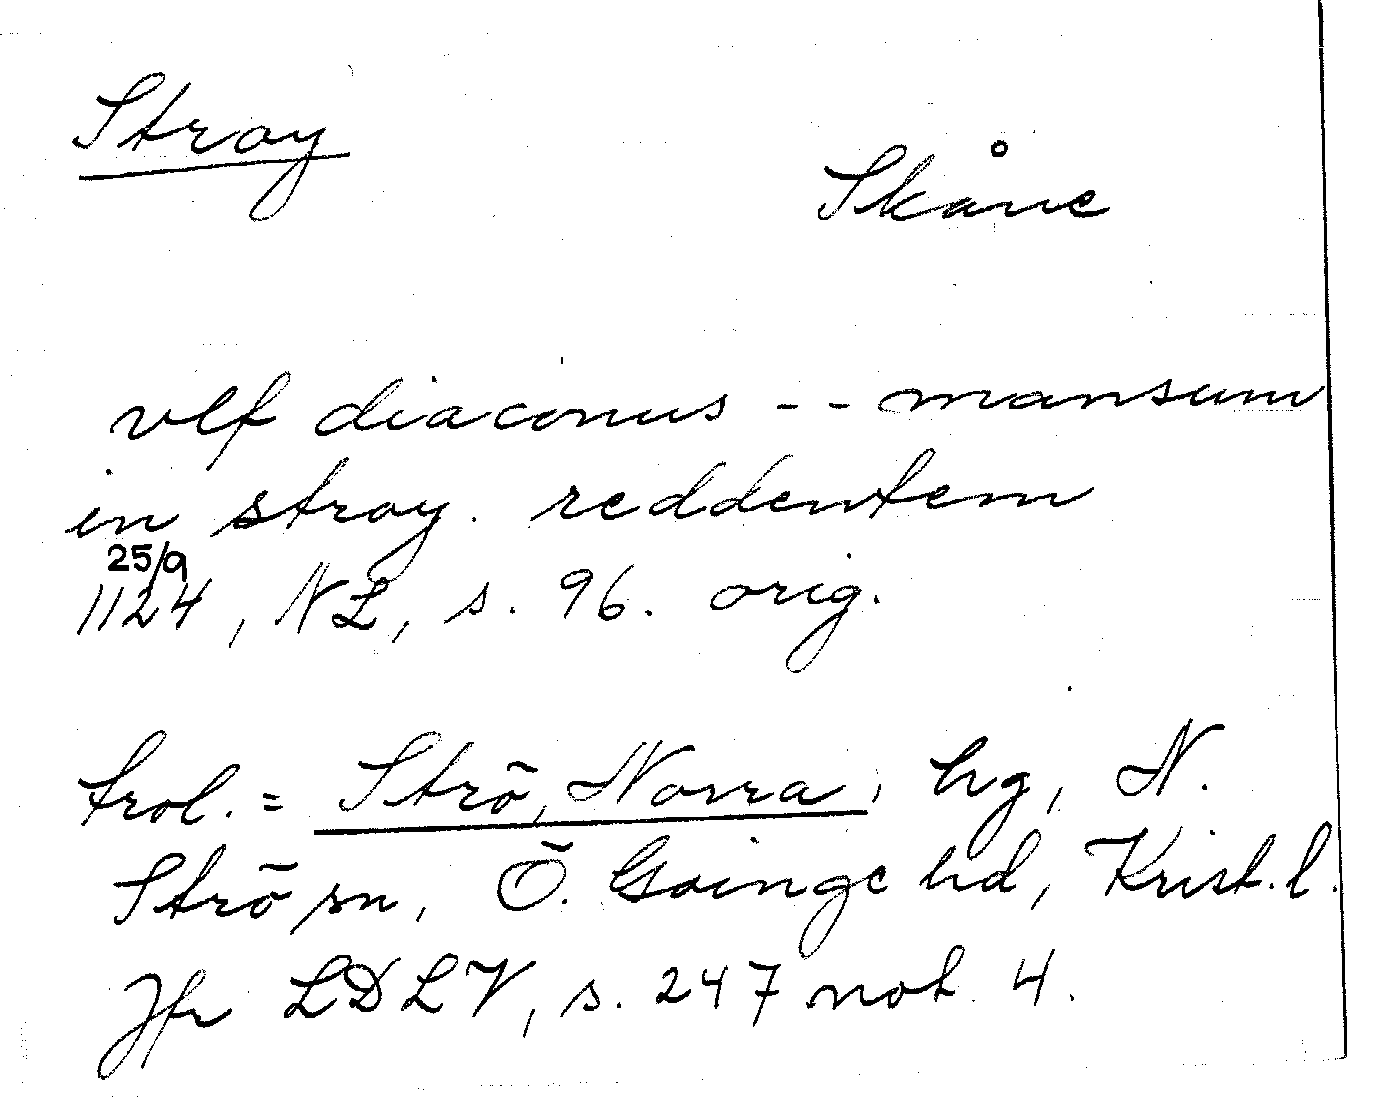 Stroy
Skåne
vlf diaconus -- mansum
in stroy. reddentem
25/9
1124, NL, s. 96. orig.
trol. = Strö, Norra, hg, N.
Strö sn, Ö. Göinge hd, Krist. l.
Jfr LDLV, s. 247 not 4.